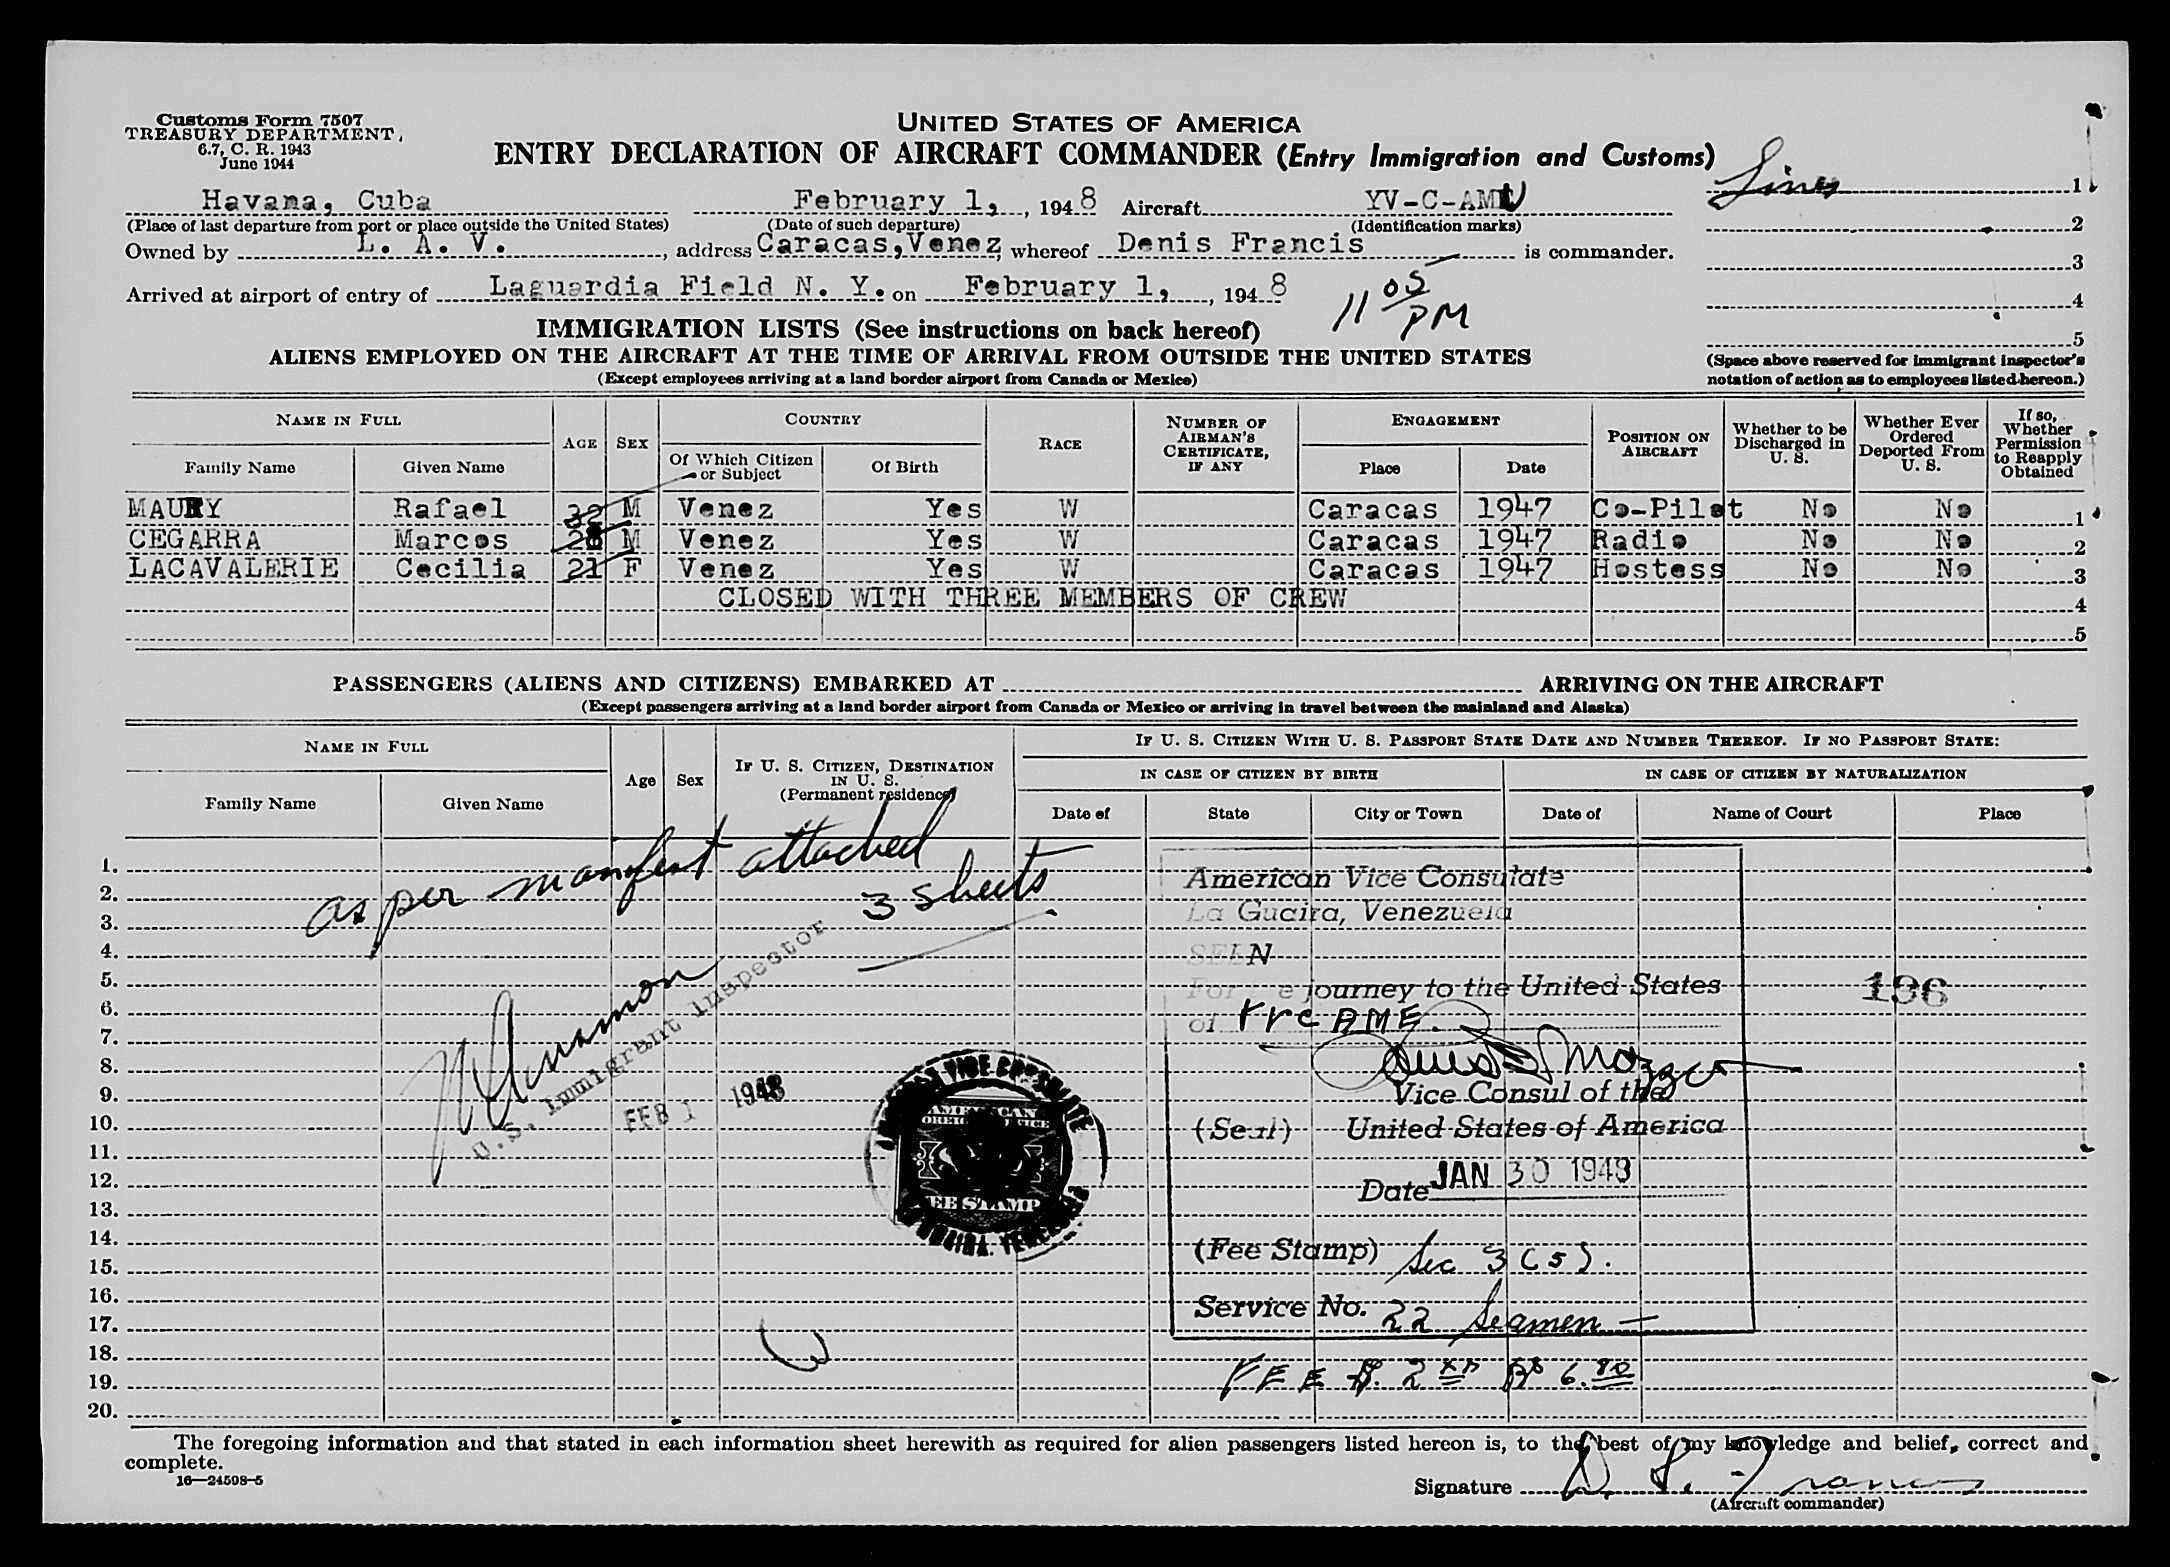 Customs Form 7507
TREASURY DEPARTMENT,
6.7, C. R. 1943
June 1944
UNITED STATES OF AMERICA
ENTRY DECLARATION OF AIRCRAFT COMMANDER (Entry Immigration and Customs)
Havana, Cuba February 1, 1948 Aircraft YV-C-AM 1
(Place of last departure from port or place outside the United States) (Date of such departure) (Identification marks) 2
Owned by L. A. V., address Caracas, Venez, whereof Denis Francis is commander.
3
Arrived at airport of entry of Laguardia Field N. Y. on February 1, 1948 11 05 PM
4
5
IMMIGRATION LISTS (See instructions on back hereof)
ALIENS EMPLOYED ON THE AIRCRAFT AT THE TIME OF ARRIVAL FROM OUTSIDE THE UNITED STATES
(Space above reserved for immigrant inspector's
(Except employees arriving at a land border airport from Canada or Mexico)
notation of action as to employees listed hereon.)
NAME IN FULL AGE SEX COUNTRY RACE NUMBER OF AIRMAN'S CERTIFICATE, IF ANY ENGAGEMENT POSITION ON AIRCRAFT Whether to be Discharged in U. S. Whether Ever Ordered Deported From U. S. If so, Whether Permission to Reapply Obtained
Family Name Given Name Of Which Citizen or Subject Of Birth Place Date
MAURY Rafael 32 M Venez Yes W Caracas 1947 Co-Pilot No No 1
CEGARRA Marcos 28 M Venez Yes W Caracas 1947 Radio No No 2
LACAVALERIE Cecilia 21 F Venez Yes W Caracas 1947 Hostess No No 3
CLOSED WITH THREE MEMBERS OF CREW 4
5
PASSENGERS (ALIENS AND CITIZENS) EMBARKED AT ARRIVING ON THE AIRCRAFT
(Except passengers arriving at a land border airport from Canada or Mexico or arriving in travel between the mainland and Alaska)
NAME IN FULL Age Sex IF U. S. CITIZEN, DESTINATION IN U. S. (Permanent residence) IF U. S. CITIZEN WITH U. S. PASSPORT STATE DATE AND NUMBER THEREOF. IF NO PASSPORT STATE:
IN CASE OF CITIZEN BY BIRTH IN CASE OF CITIZEN BY NATURALIZATION
Family Name Given Name Date of State City or Town Date of Name of Court Place
1.
2.
3.
4.
5.
6.
7.
8.
9.
10.
11.
12.
13.
14.
15.
16.
17.
18.
19.
20.
as per manifest attached
3 sheets
U. S. Immigrant Inspector
FEB 1 1948
AMERICAN VICE CONSULATE
AMERICAN
FOREIGN SERVICE
FEE STAMP
LA GUAIRA, VENEZUELA
American Vice Consulate
La Guaira, Venezuela
SEEN
For the journey to the United States
of YVC AME.
Vice Consul of the
(Seal) United States of America
Date JAN 30 1948
(Fee Stamp) Sec 3 (5).
Service No. 22 Seamen
FEE $. 2 Bs 6.80
196
The foregoing information and that stated in each information sheet herewith as required for alien passengers listed hereon is, to the best of my knowledge and belief, correct and
complete.
16—24598-5
Signature D. Francis
(Aircraft commander)